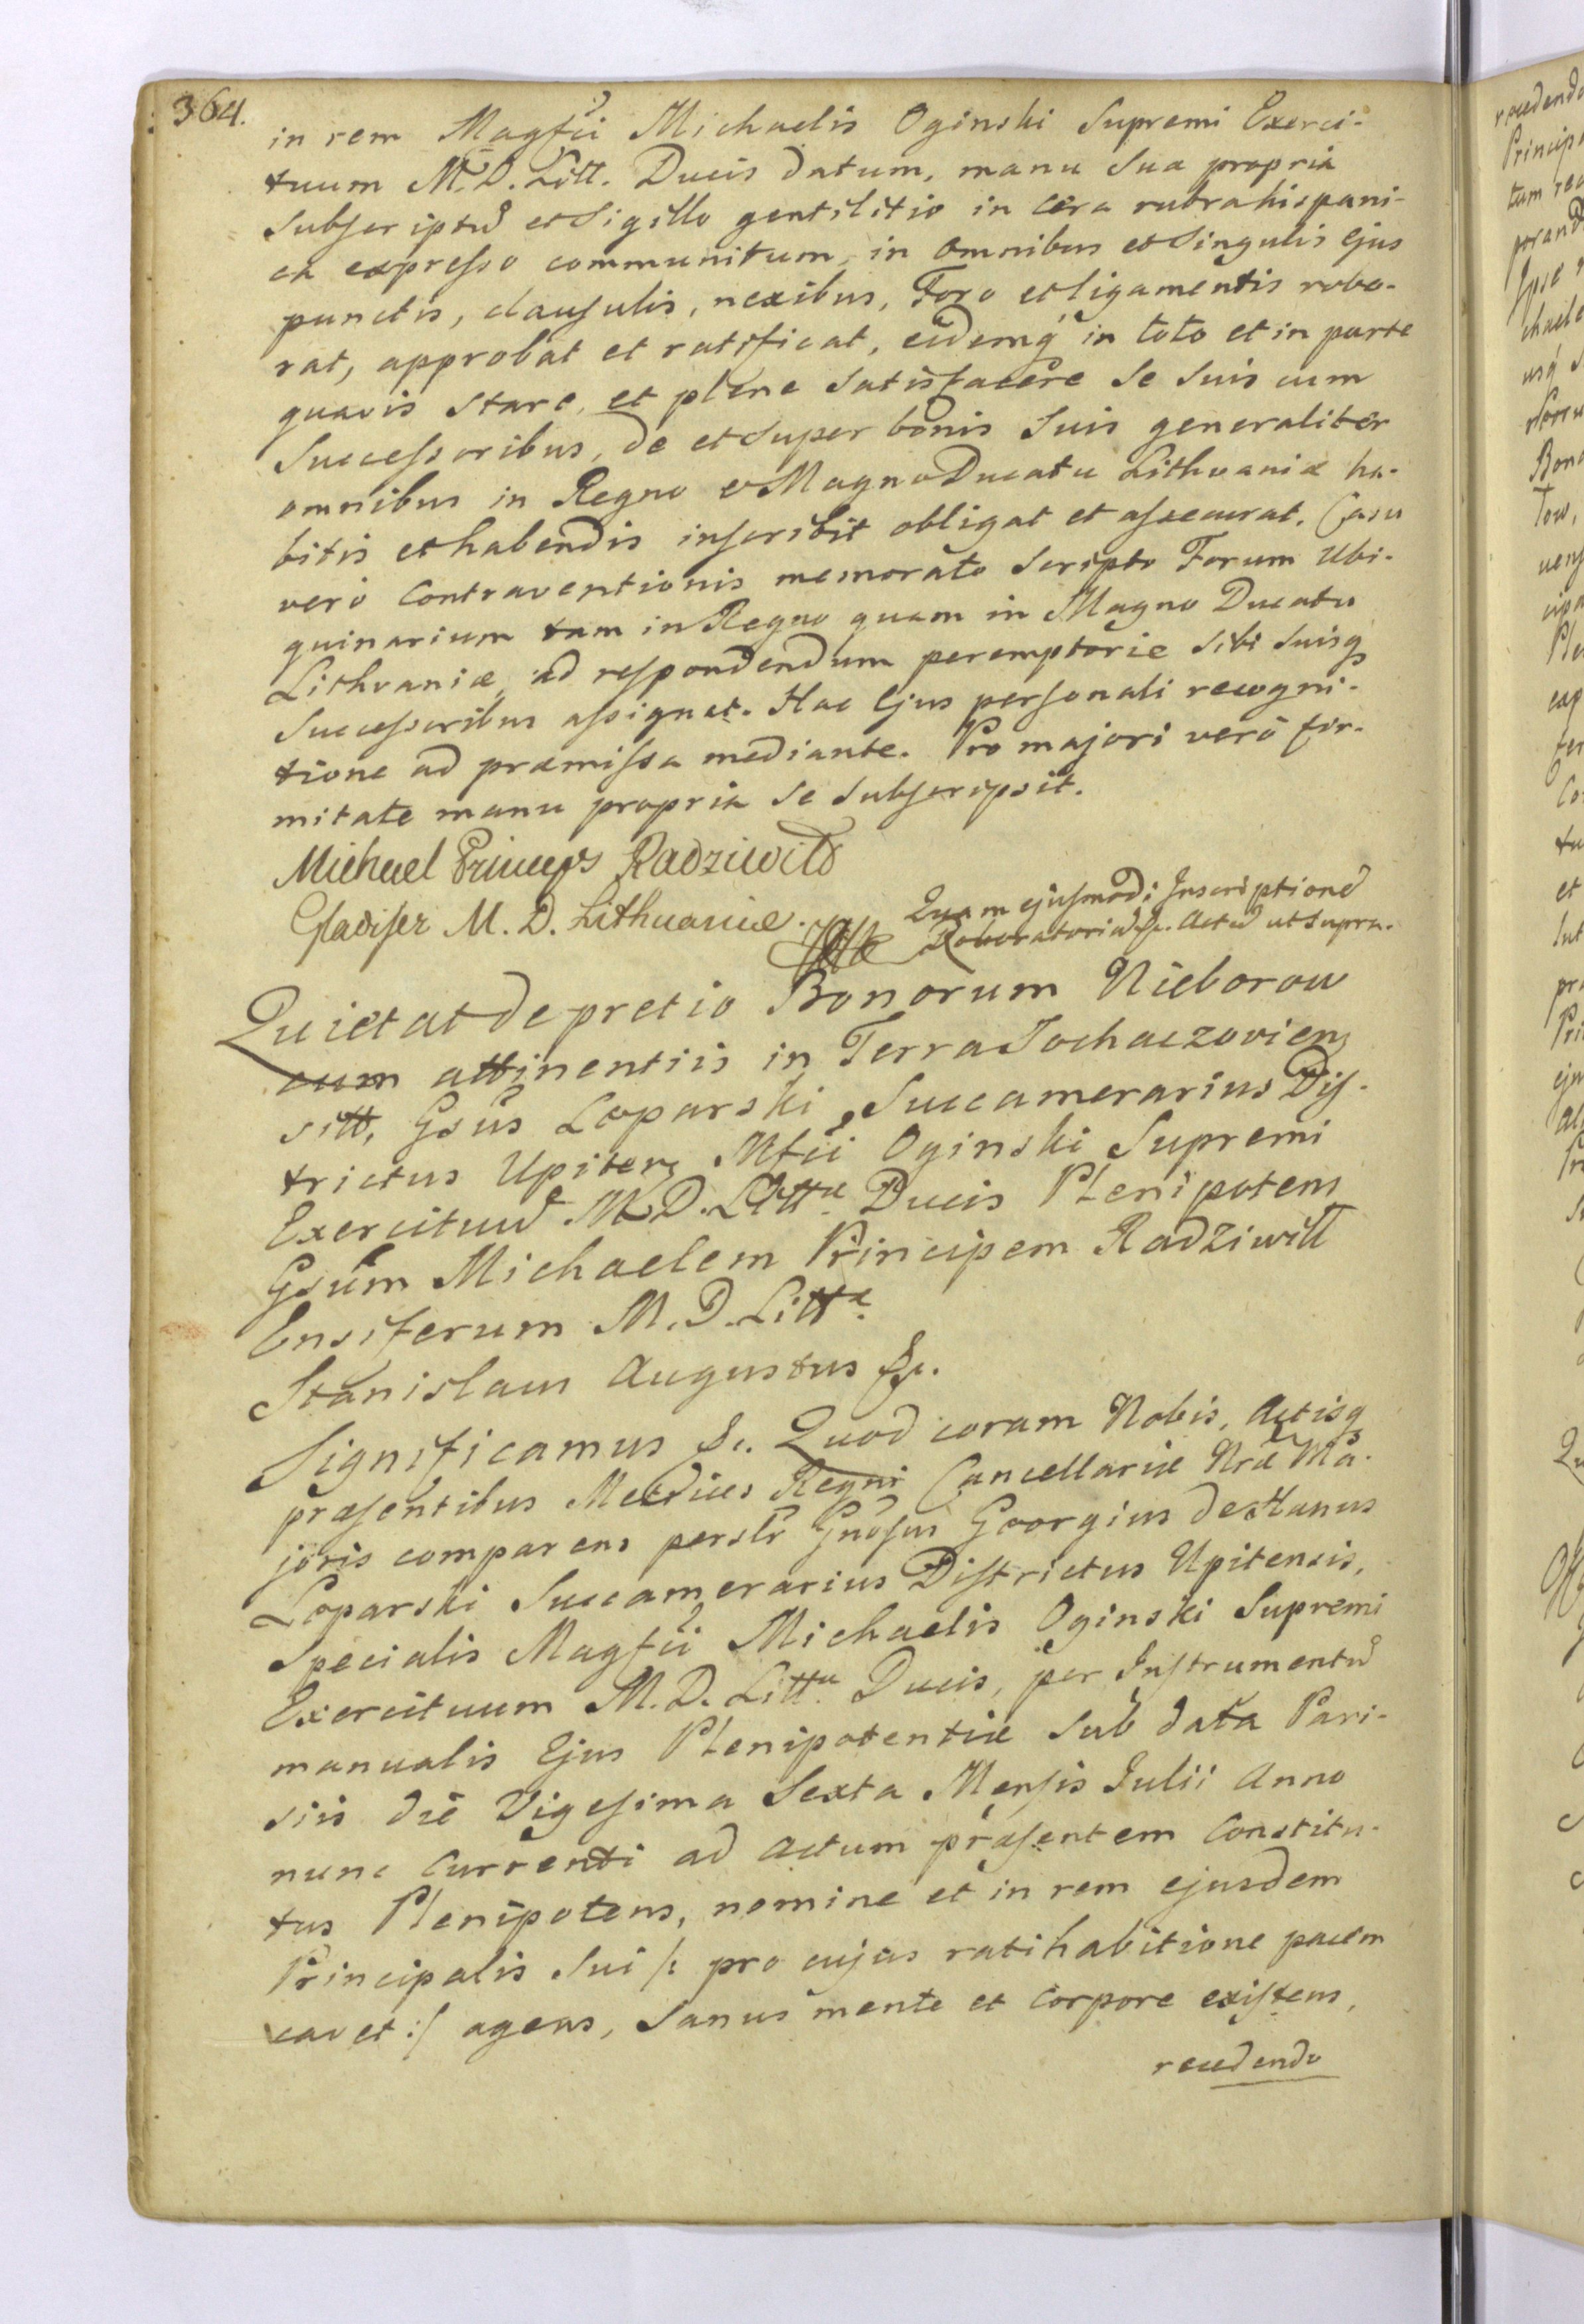 364.
in rem Magfci Michaelis Oginski Supremi Exerci-
tuum M. D. Litt. Ducis datum, manu sua propria
subscriptũ et Sigillo gentilitio in cera rubra hispani-
ca expresso communitum, in omnibus et singulis ejus
punctis, clausulis, nexibus, Foro et ligamentis robo-
rat, approbat et ratificat, eidemq́ in toto et in parte
quavis stare, et plene satisfacere se suis cum
Successoribus, de et super bonis suis generaliter
omnibus in Regno et Magno Ducatu Lithvaniæ ha-
bitis et habendis inscribit obligat et assecurat. Casu
verò Contraventionis memorato scripto Forum Ubi-
quinarium tam in Regno quam in Magno Ducatu
Lithvaniæ, ad respondendum peremptorie sibi suisq
Successoribus assignat. Hac Ejus personali recogni-
tione ad præmissa mediante. Pro majori verò fir-
mitate manu propria se subscripsit.
Michael Princeps Radziwiłł
Gladifer M. D. Lithuaniæ.
Quam ejusmodi Inscriptionẽ
Roboratoriã &c. Actũ ut supra.
Quietat de pretio Bonorum Nieborow
cum attinentiis in Terra Sochaczovien
sitt, Gsus Łoparski, Succamerarius Dis-
trictus Upiten, Mfci Oginski Supremi
Exercituũ M. D. Littæ Ducis Plenipotens
Gsum Michaelem Principem Radziwiłł
Ensiferum M. D. Littæ.
Stanislaus Augustus &c.
Significamus &c. Quod coram Nobis, Actisq
præsentibus Metrices Regni Cancellariæ Nræ Ma-
joris comparens perslr Gnosus Georgius de Hanus
Łoparski Succamerarius Districtus Upitensis,
Specialis Magfci Michaelis Oginski Supremi
Exercituum M. D. Littæ Ducis, per Instrumentũ
manualis Ejus Plenipotentiæ sub data Pari-
siis die Vigesima Sexta Mensis Julii Anno
nunc Currenti ad Actum præsentem Constitu-
tus Plenipotens, nomine et in rem ejusdem
Principalis sui /: pro cujus ratihabitione pacem
cavet :/ agens, Sanus mente et corpore existens,
recedendo